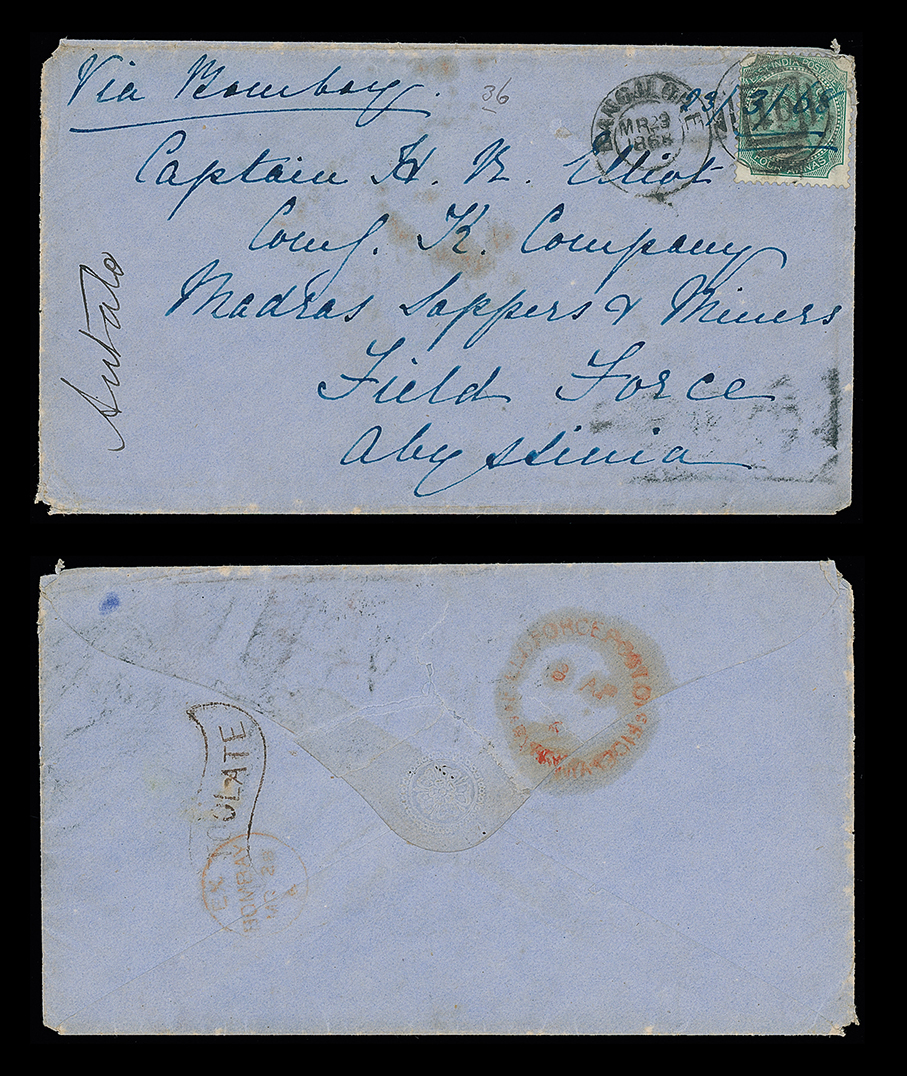 Via Bombay.
36
BANGALORE
MR 23
1868
EAST INDIA POSTAGE
FOUR ANNAS
23/3/68
Captain H. R. Elliot
Comg. K. Company
Madras Sappers & Miners
Field Force
Abyssinia
Antalo
FIELD FORCE POST OFFICE
AP
TOO LATE
BOMBAY
MR 28
A